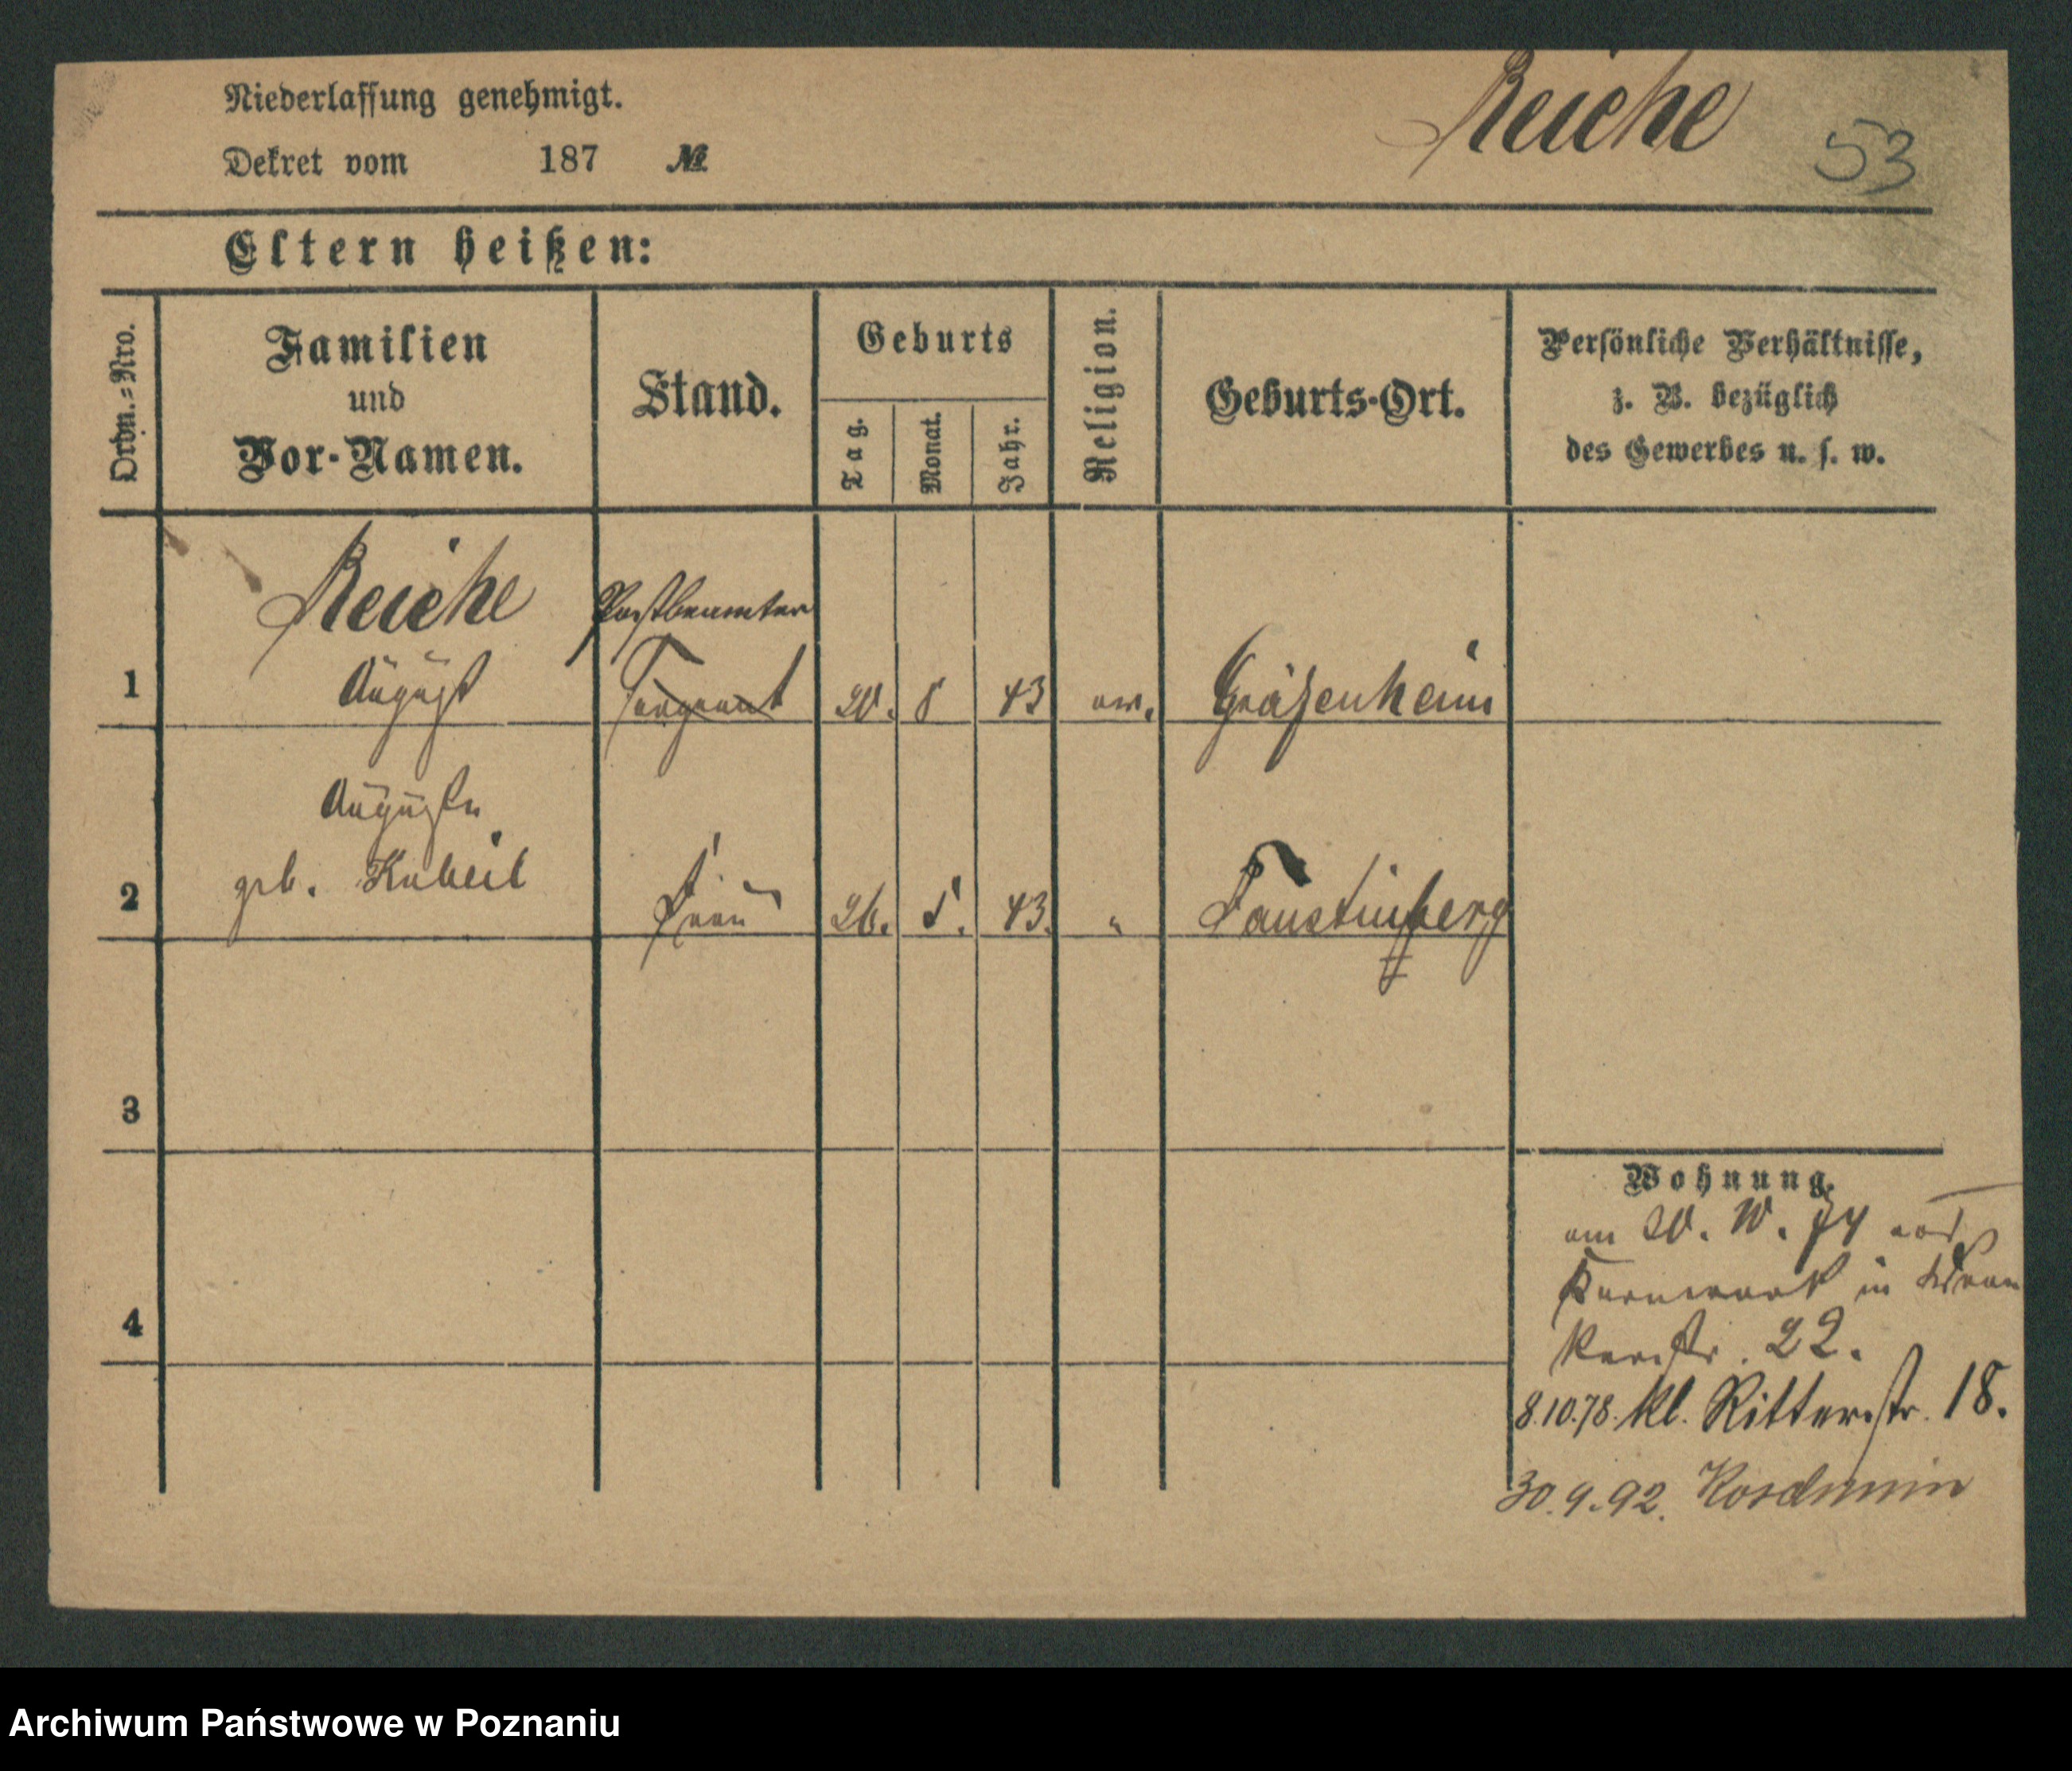 Niederlassung genehmigt.
Reiche
53
Dekret vom 187 №
Eltern heißen:
Ordn.=Nro.
Familien
und
Vor-Namen.
Stand.
Geburts
Tag.
Monat.
Jahr.
Religion.
Geburts-Ort.
Persönliche Verhältnisse,
z. B. bezüglich
des Gewerbes u. s. w.
Reiche
Postbeamter
1 August Sergeant 20. 8 43 ev. Gräfenhein
Auguste
2 geb. Kubeil Frau 26. 5. 43. " Faustinberg
3
4
Wohnung.
am 20. 10. 74 von
in
22.
8.10.78. kl. Ritterstr. 18.
30.9.92. Kosch
Archiwum Państwowe w Poznaniu